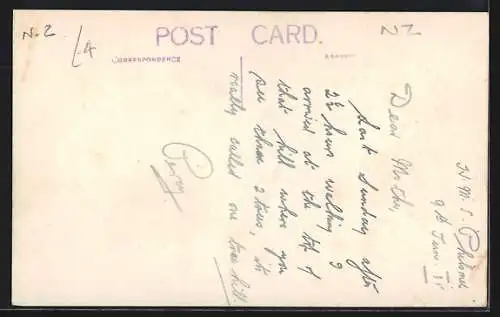 N.Z
L4
NZ
POST CARD.
CORRESPONDENCE
H.M.S. Philomel
9th June.
Dear Mother,
Last Sunday after
2½ hours walking I
arrived at the top of
that hill where you
see those 2 trees, its
really called one tree hill
Percy